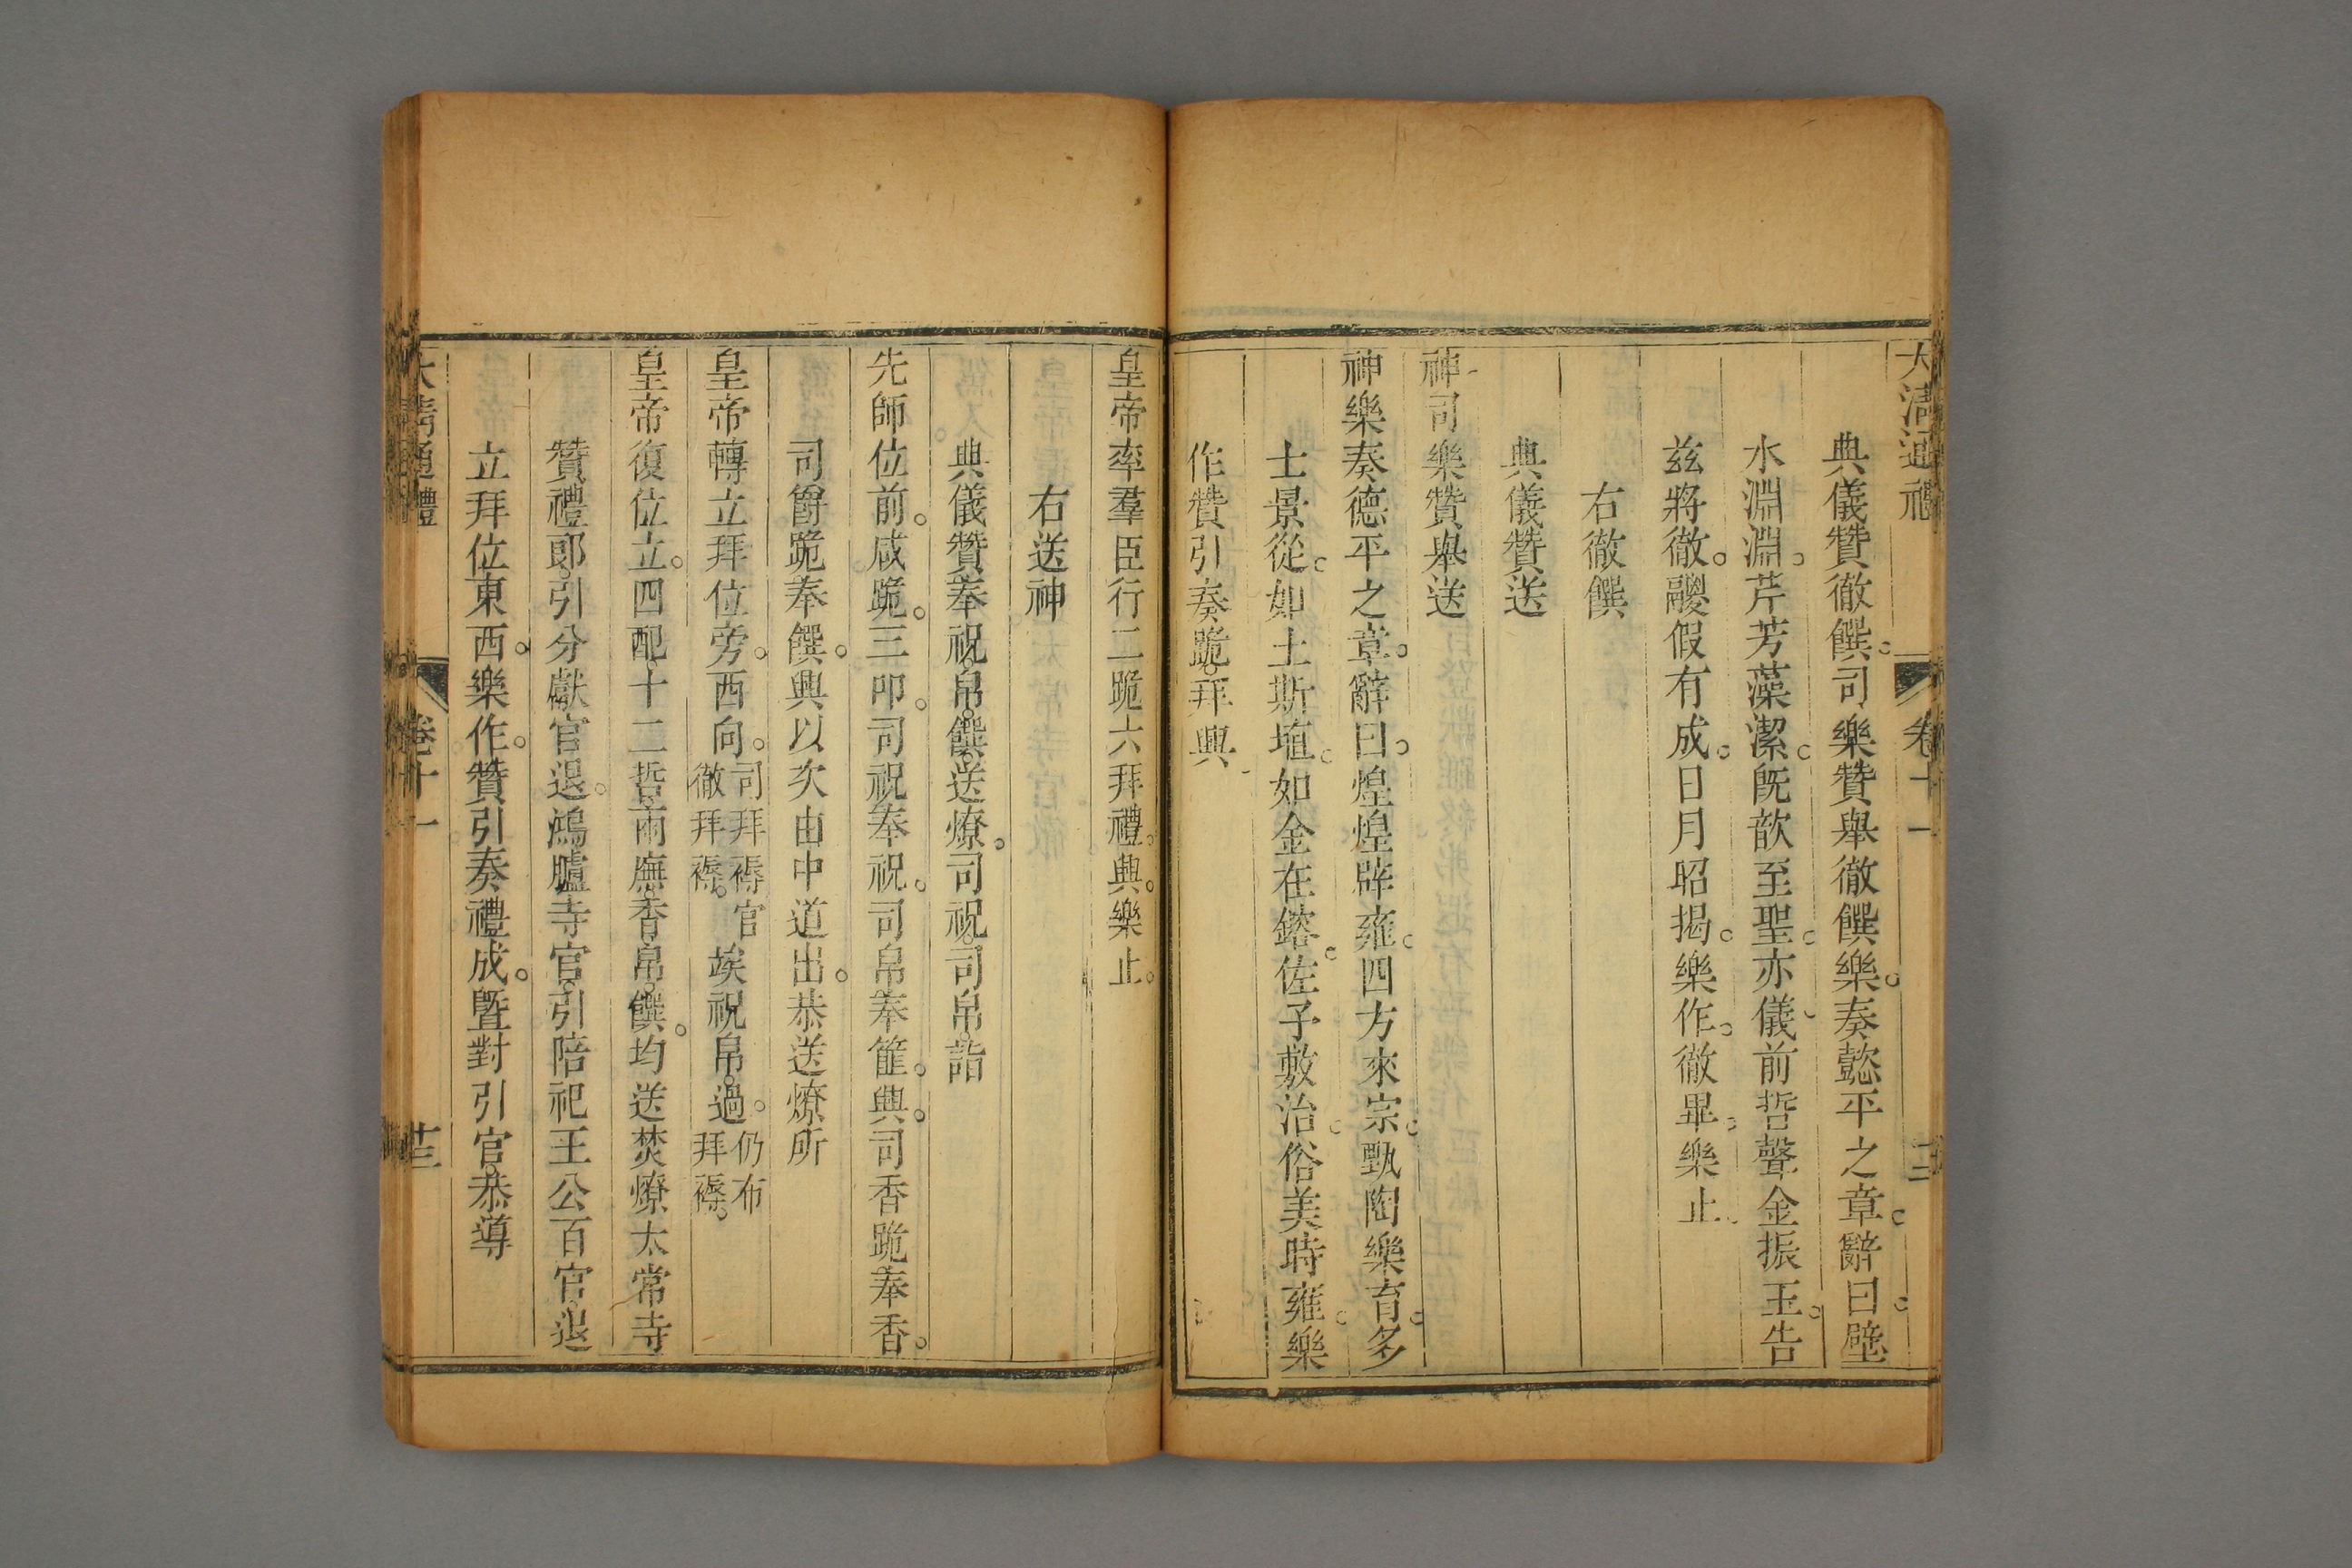 大清通禮 卷十一
典儀贊徹饌。司樂贊舉徹饌樂。奏懿平之章。辭曰。璧
水淵淵。芹芳藻潔。旣歆至聖。亦儀前哲。聲金振玉。告
兹將徹。鬷假有成。日月昭揭。樂作。徹畢。樂止。
右徹饌
典儀贊送
神司樂贊舉送
神樂奏德平之章。辭曰。煌煌辟雍。四方來宗。甄陶樂育。多
士景從。如土斯埴。如金在鎔。佐予敷治。俗美時雍。樂
作贊引奏跪。拜興。
皇帝率羣臣行二跪六拜禮。興。樂止。
右送神
典儀贊奉祝。帛。饌。送燎。司祝。司帛詣
先師位前。咸跪。三叩。司祝奉祝。司帛奉篚。興。司香跪奉香。
司爵跪奉饌。興以次由中道出。恭送燎所
皇帝轉立拜位旁。西向。司拜褥官徹拜褥。竢祝帛過。仍布拜褥。
皇帝復位立。四配。十二哲。兩廡。香帛。饌。均送焚燎太常寺
贊禮郎。引分獻官退。鴻臚寺官。引陪祀王公百官。退
立拜位東西。樂作。贊引奏禮成。曁對引官。恭導
大清通禮 卷十一